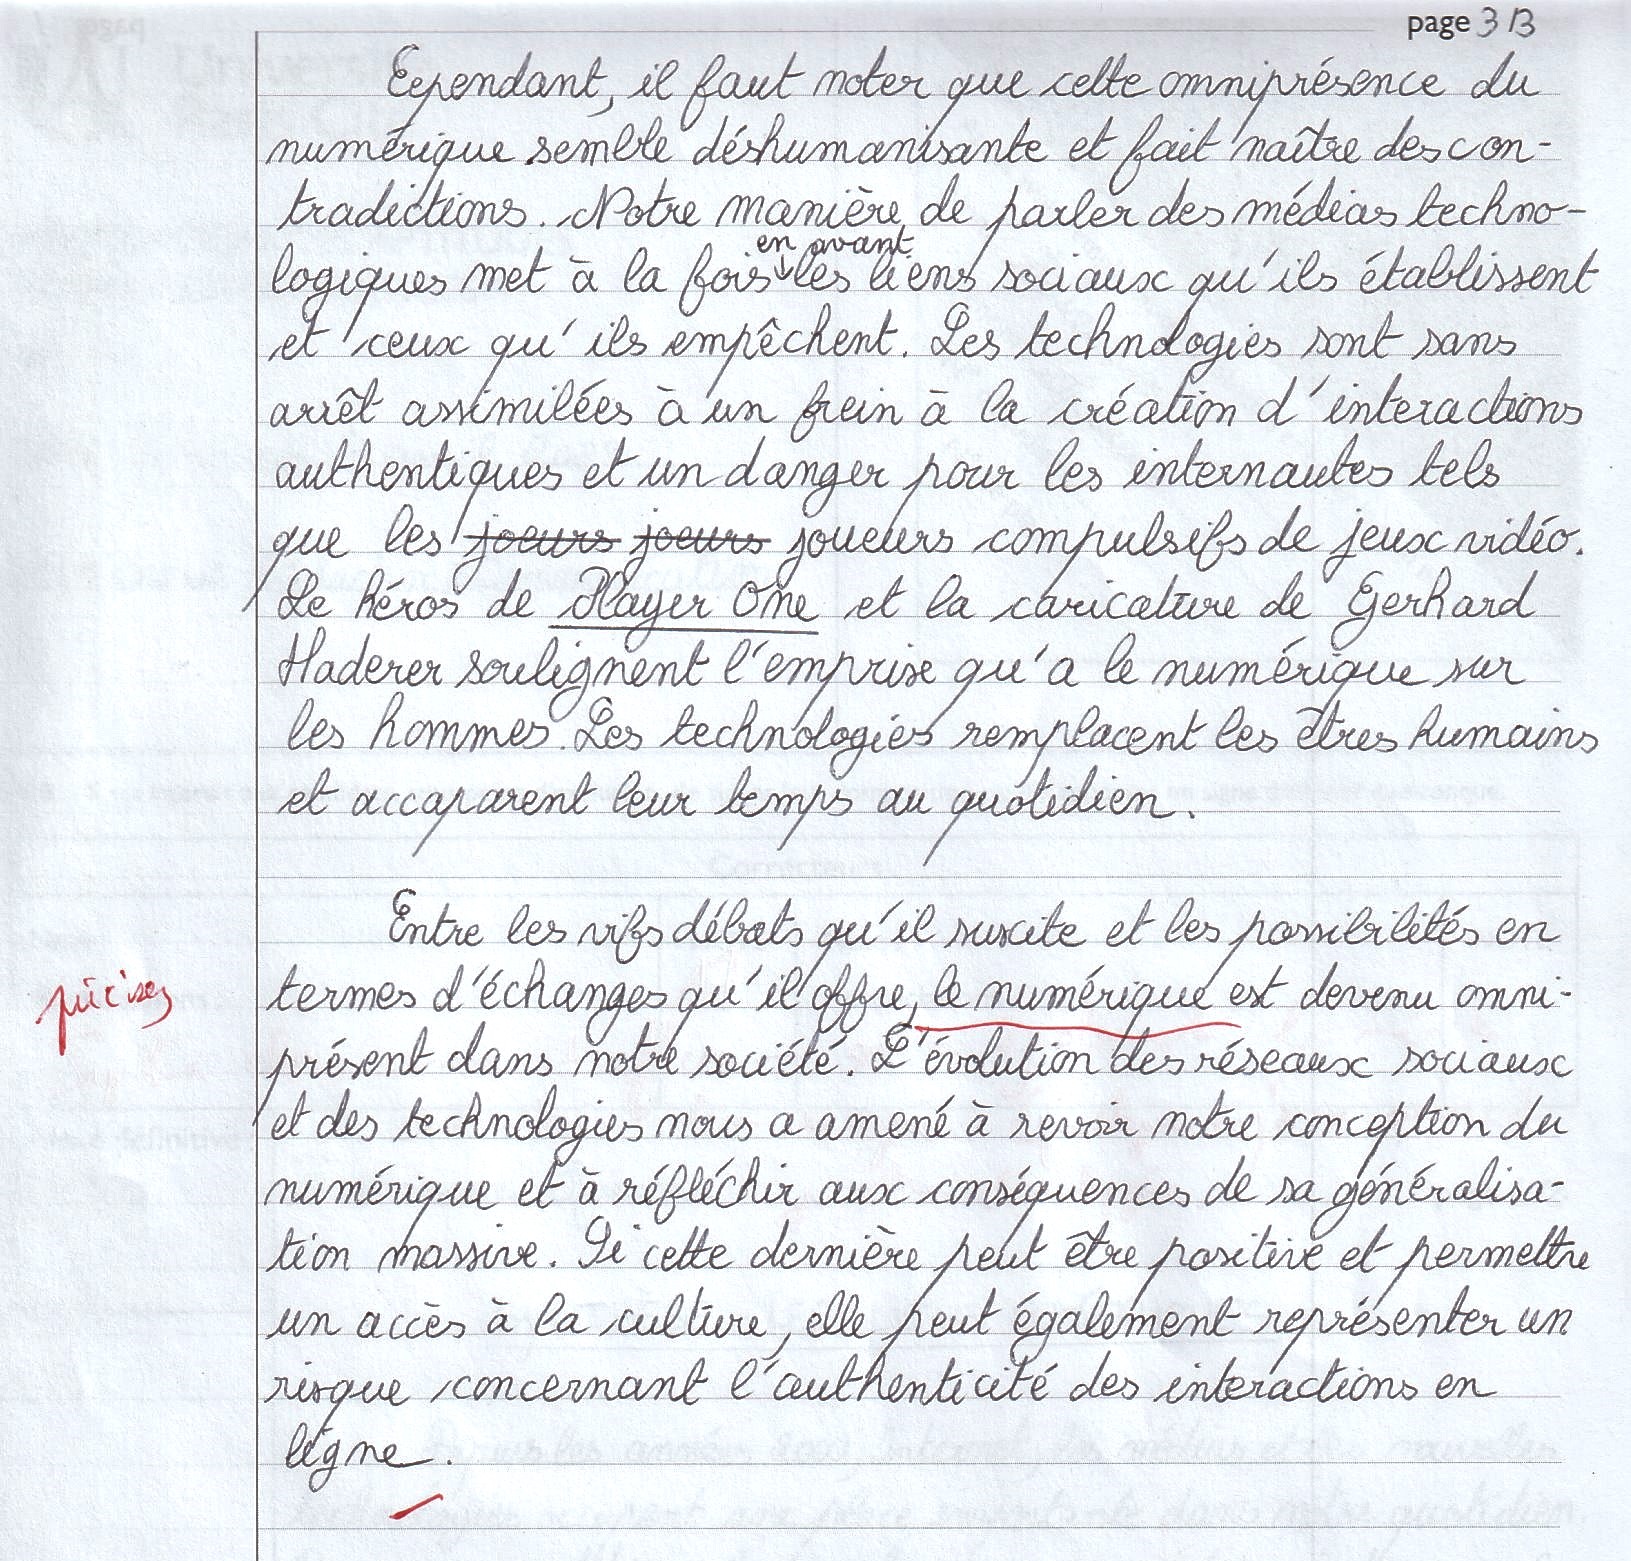 page 3/3
Cependant, il faut noter que cette omniprésence du
numérique semble déshumanisante et fait naître des con-
tradictions. Notre manière de parler des médias techno-
en avant
logiques met à la fois ↓ les liens sociaux qu'ils établissent
et ceux qu'ils empêchent. Les technologies sont sans
arrêt assimilées à un frein à la création d'interactions
authentiques et un danger pour les internautes tels
que les joeurs joeurs joueurs compulsifs de jeux vidéo.
Le héros de Player One et la caricature de Gerhard
Haderer soulignent l'emprise qu'a le numérique sur
les hommes. Les technologies remplacent les êtres humains
et accaparent leur temps au quotidien.
Entre les vifs débats qu'il suscite et les possibilités en
précisez
termes d'échanges qu'il offre, le numérique est devenu omni-
présent dans notre société. L'évolution des réseaux sociaux
et des technologies nous a amené à revoir notre conception du
numérique et à réfléchir aux conséquences de sa généralisa-
tion massive. Si cette dernière peut être positive et permettre
un accès à la culture, elle peut également représenter un
risque concernant l'authenticité des interactions en
ligne.